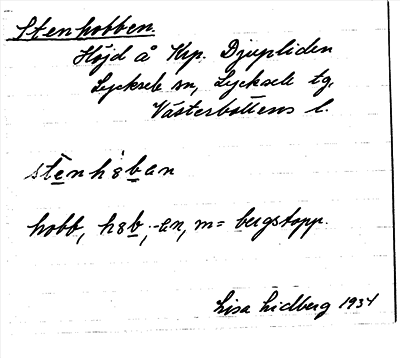 Stenhobben.
Höjd å Krp. Djupliden
Lycksele sn, Lycksele tg,
Västerbottens l.
stenhȣban
hobb, hȣb, -en, m = bergstopp.
Lisa Lidberg 1934